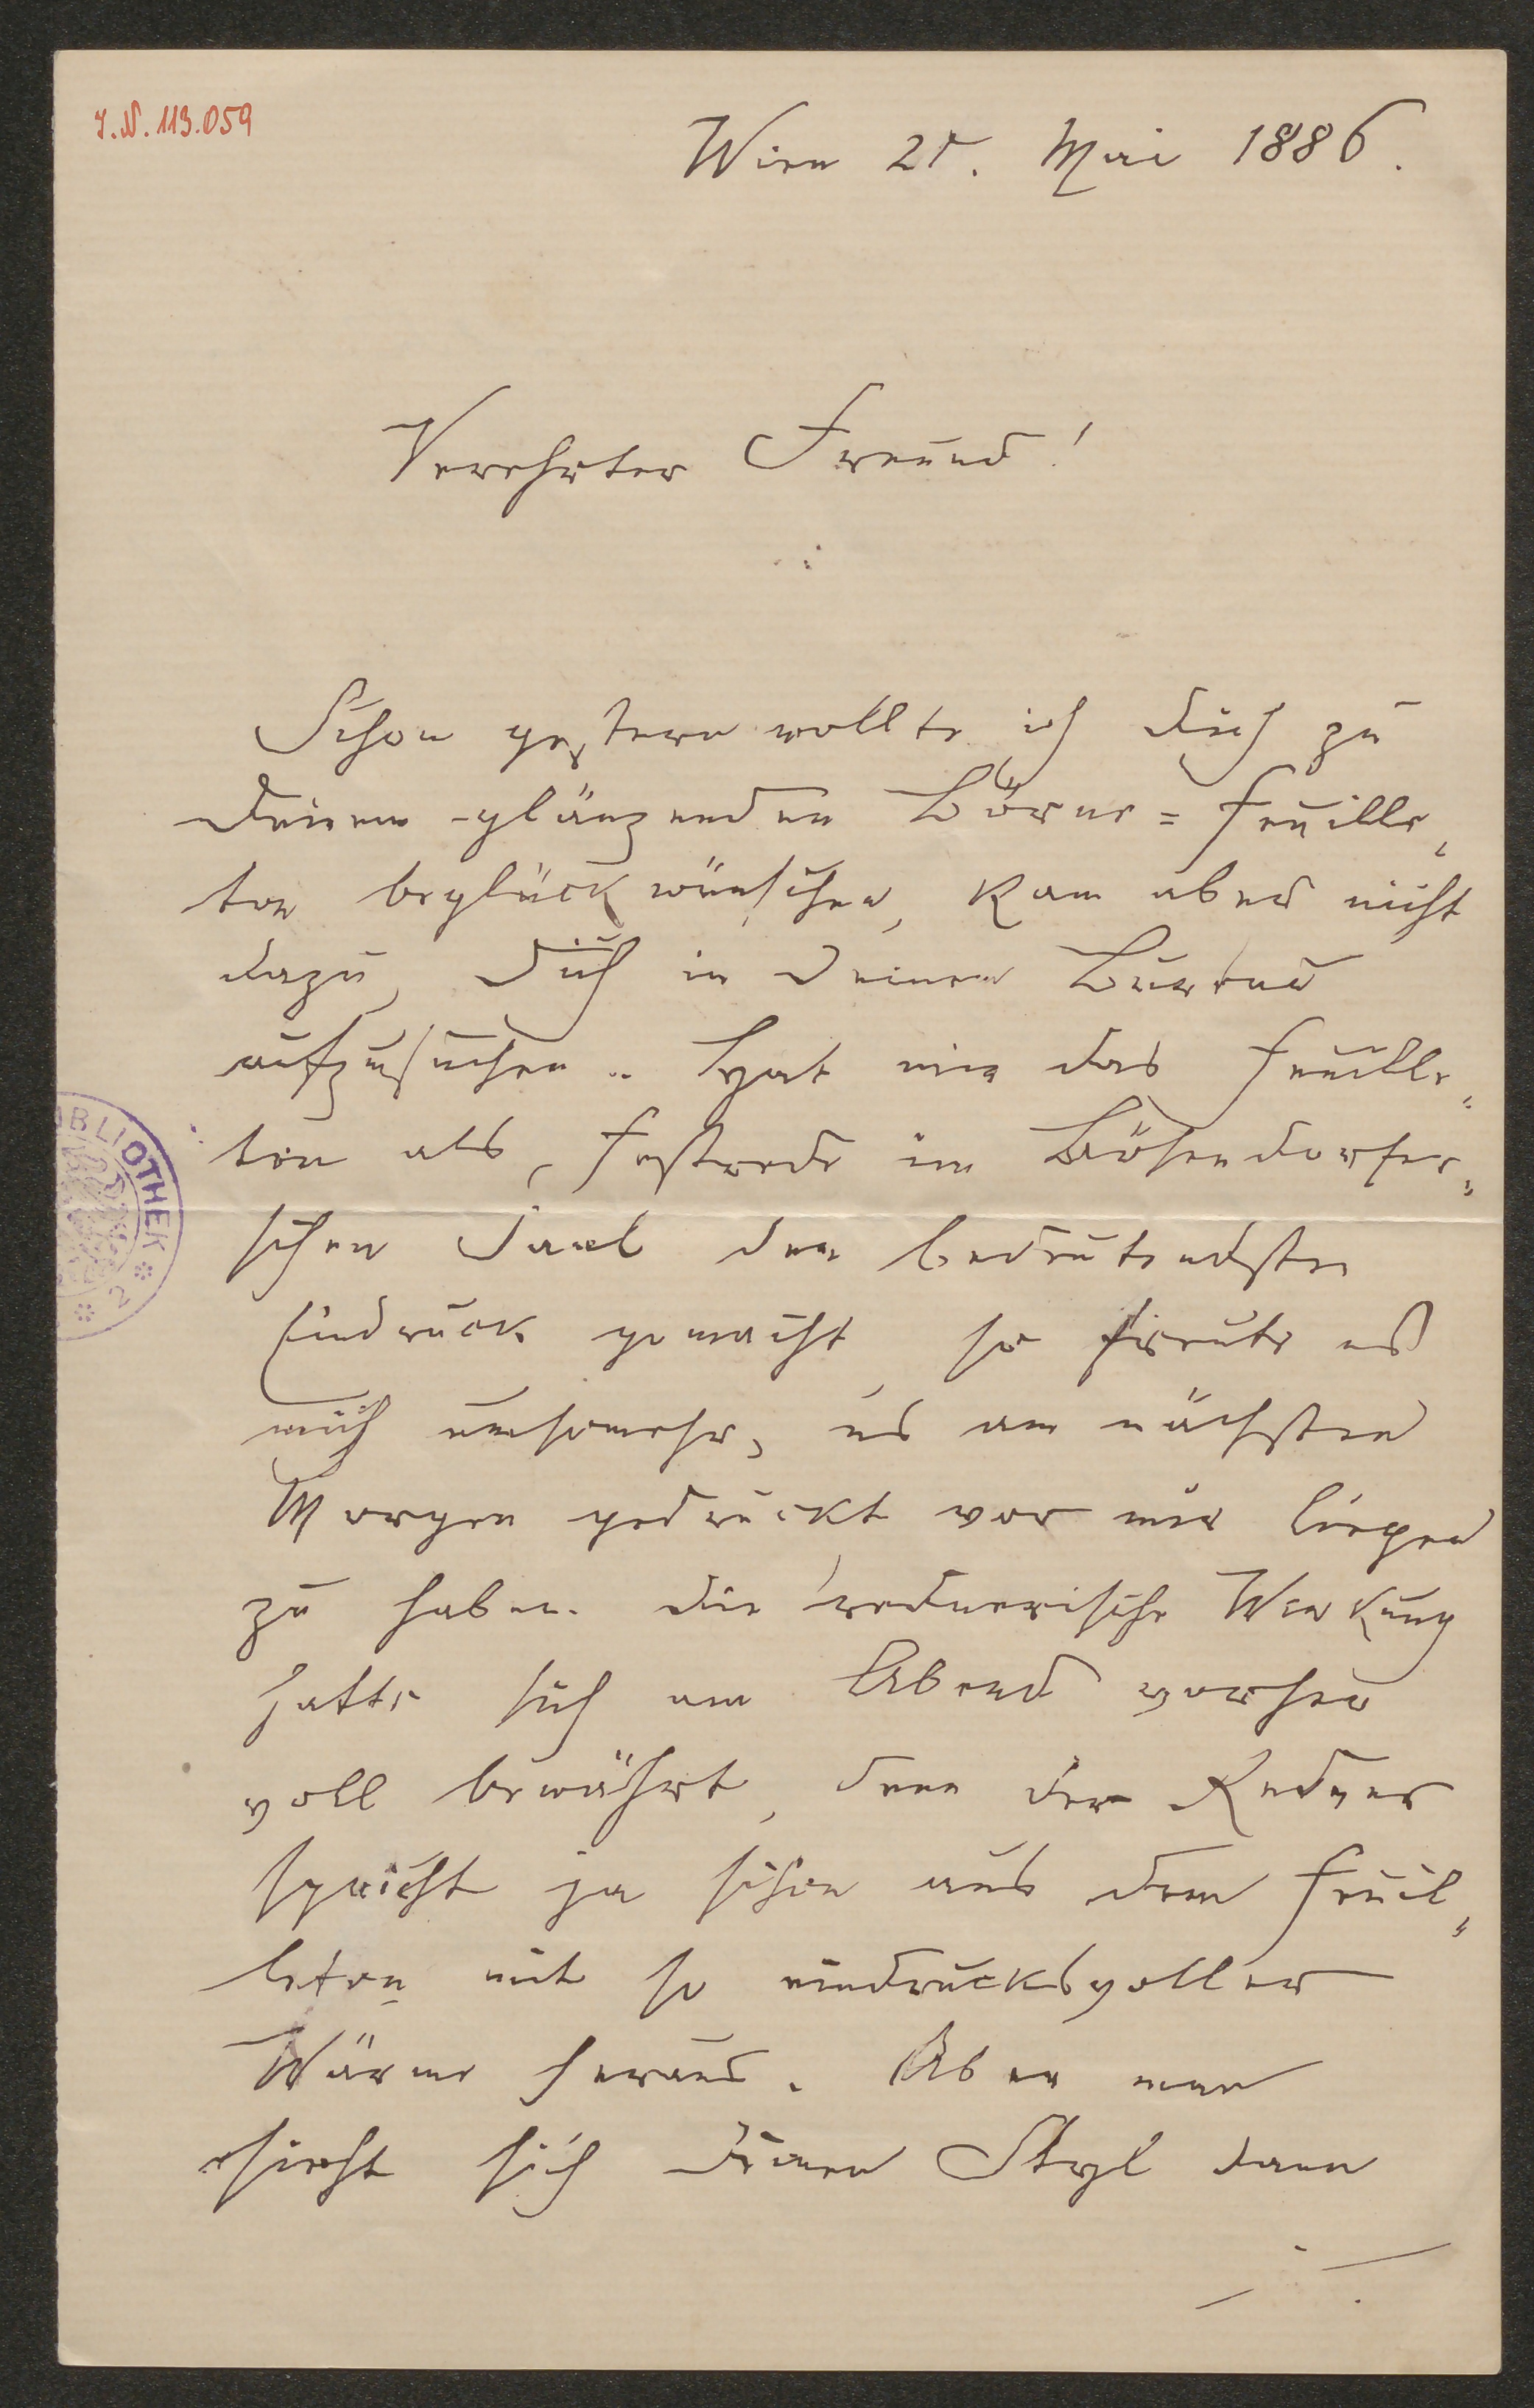 J.N. 113.059
Wien 25. Mai 1886.
Verehrter Freund!
Schon gestern wollte ich Dich zu
Deinem glänzenden Börne=Feuille,
ton beglückwünschen, kam aber nicht
dazu, Dich in Deinem Bureau
aufzusuchen. Hat mir das Feuille,
ton als Festrede im Bösendorfer,
schen Saal den bedeutendsten
Eindruck gemacht, so freute es
mich umsomehr, es am nächsten
Morgen gedruckt vor mir liegen
zu haben. Die rednerische Wirkung
hatte sich am Abend vorher
voll bewährt, denn der Redner
spricht ja schon aus dem Feuil,
leton mit so eindrucksvoller
Wärme heraus. Aber man
sieht sich Deinen Styl dann
BIBLIOTHEK